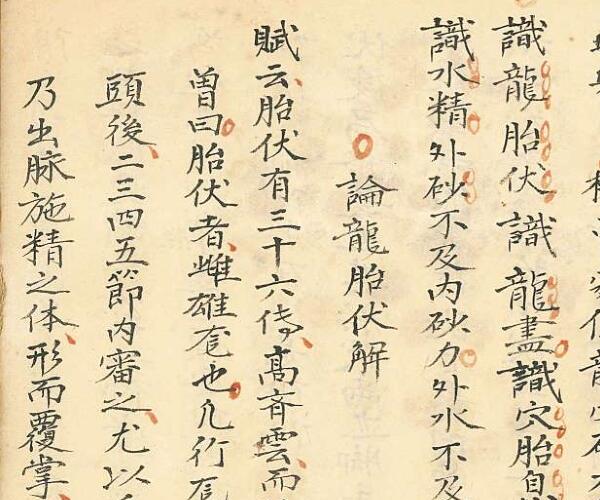 識龍胎伏識龍盡識穴胎自
識水精外砂不及內砂力外水不及
論龍胎伏解
賦云胎伏有三十六俦髙斉雲而
曾曰胎伏者雌雄㐌也凢行
頭後二三四五節內審之尤以
乃出脉施精之体形而覆掌